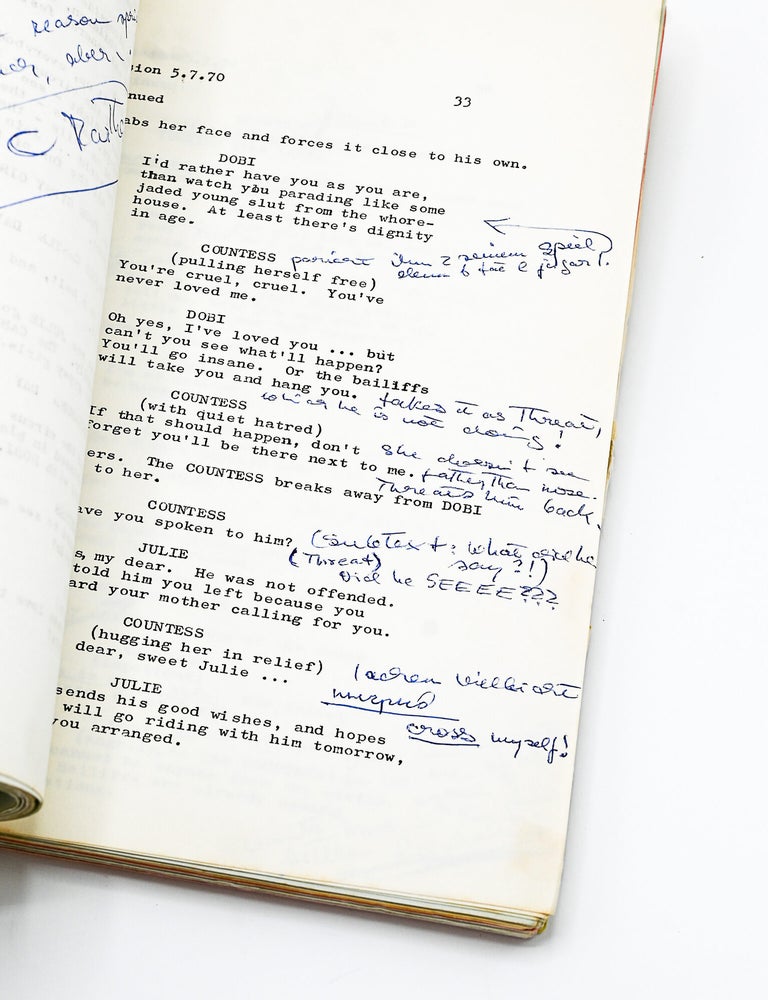 reason
aber
C
ion 5.7.70
nued
33
abs her face and forces it close to his own.
DOBI
I'd rather have you as you are,
than watch you parading like some
jaded young slut from the whore-
house. At least there's dignity
in age.
COUNTESS
(pulling herself free)
You're cruel, cruel. You've
never loved me.
DOBI
Oh yes, I've loved you ... but
can't you see what'll happen?
You'll go insane. Or the bailiffs
will take you and hang you. takes it as Threat,
COUNTESS which he is not doing!
(with quiet hatred)
If that should happen, don't she doesn't see
forget you'll be there next to me. farther than nose.
Threats him back.
ers. The COUNTESS breaks away from DOBI
to her.
COUNTESS
ave you spoken to him? (Subtext: what did he
say?!)
JULIE (Threat)
Did he SEEEE???
s, my dear. He was not offended.
told him you left because you
ard your mother calling for you.
COUNTESS
(hugging her in relief)
dear, sweet Julie ...
lachen vielleicht
JULIE
sends his good wishes, and hopes cross myself!
will go riding with him tomorrow,
you arranged.